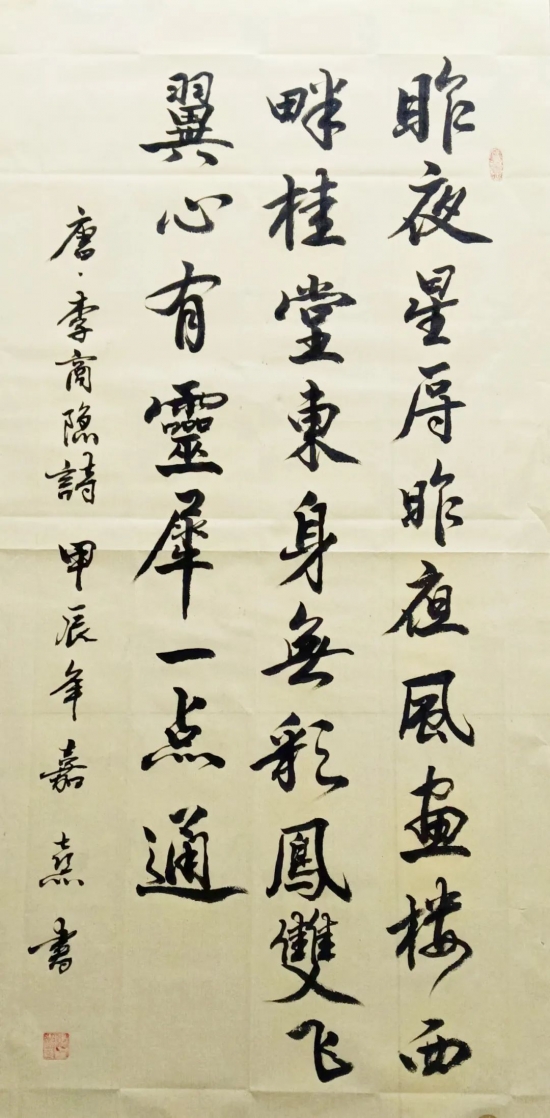 昨夜星辰昨夜風画楼西
畔桂堂東身無彩鳳雙飞
翼心有靈犀一点通
唐·李商隐詩甲辰年嘉熹書